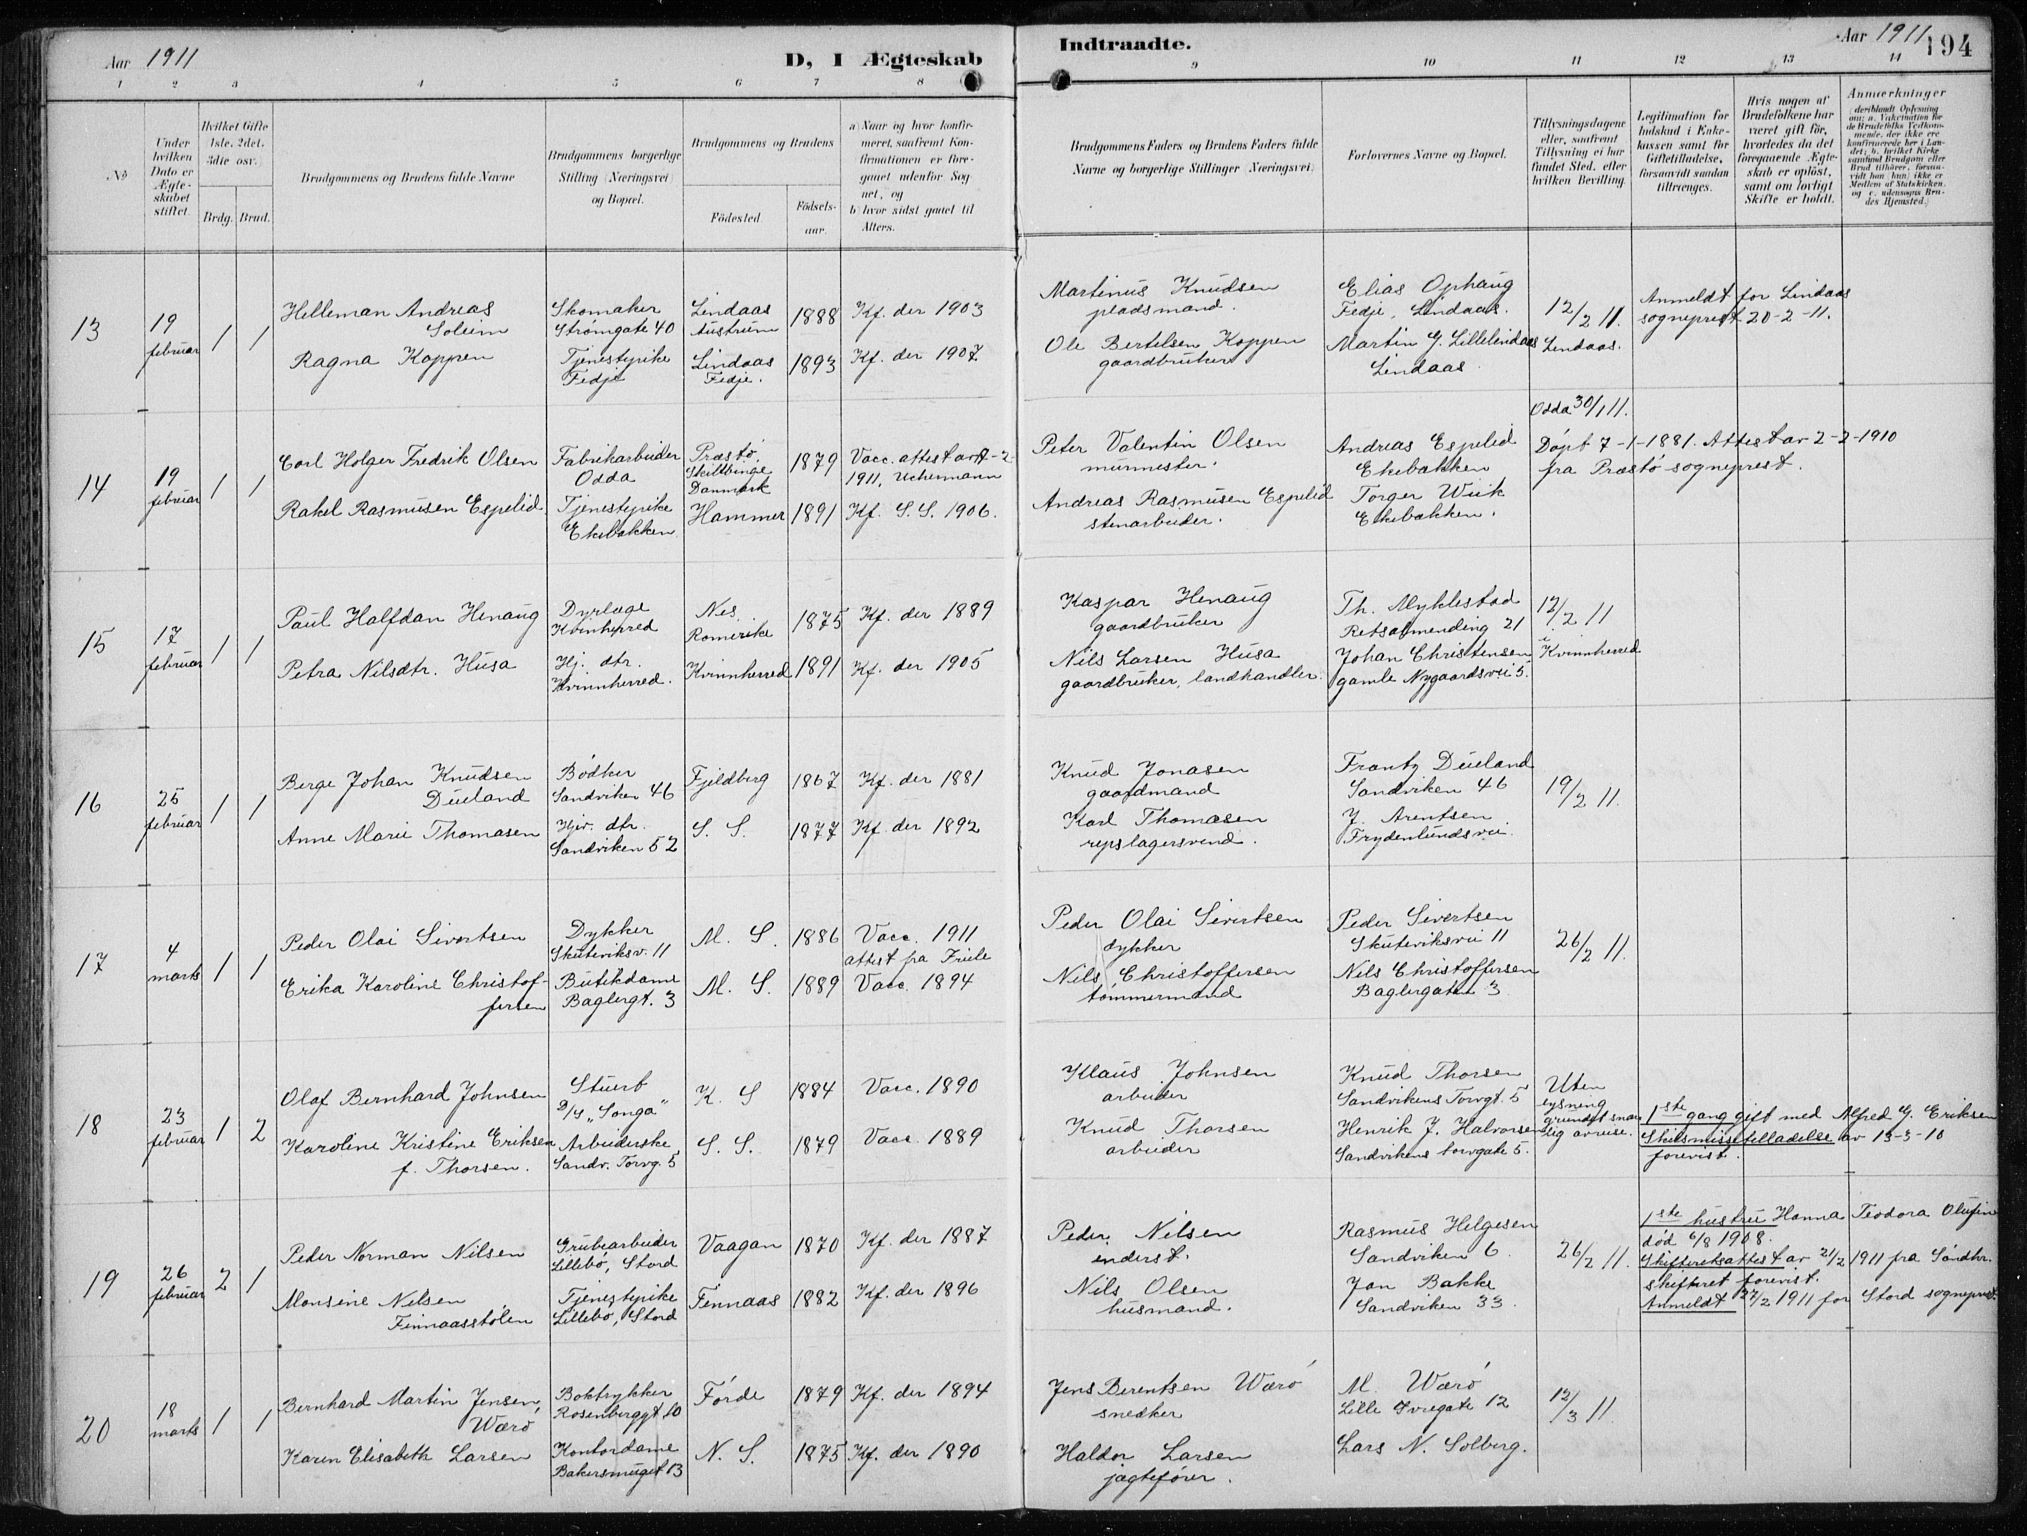 Aar 1911
D, I Ægteskab
Indtraadte.
Aar 1911.
194
1 2 3 4 5 6 7 8 9 10 11 12 13 14
No
Under hvilken Dato er Ægteskabet stiftet.
Hvilket Gifte 1ste, 2det, 3die osv.
Brdg. Brud.
Brudgommens og Brudens fulde Navne
Brudgommens borgerlige Stilling (Næringsvei) og Bopæl.
Brudgommens og Brudens
Fødested.
Fødselsaar.
a) Naar og hvor konfirmeret, saafremt Konfirmationen er foregaaet udenfor Sognet, og
b) hvor sidst gaaet til Alters.
Brudgommens Faders og Brudens Faders fulde Navne og borgerlige Stillinger (Næringsvei)
Forlovernes Navne og Bopæl.
Tillysningsdagene eller, saafremt Tillysning ei har fundet Sted, efter hvilken Bevilling.
Legitimation for Indskud i Enkekassen samt for Giftetilladelse, forsaavidt saadan tiltrænges.
Hvis nogen af Brudefolkene har været gift før, hvorledes da det foregaaende Ægteskab er opløst, samt om lovligt Skifte er holdt.
Anmærkninger (deriblandt Oplysning om: a. Vakcination for de Brudefolks Vedkommende, der ikke ere konfirmerede her i Landet; b. hvilket Kirkesamfund Brudgom eller Brud tilhører, forsavidt han (hun) ikke er Medlem af Statskirken, og c. udensogns Brudes Hjemsted.)
13
19 februar
1 1
Helleman Andreas Soleim
Skomaker
Strømgate 40
Lindaas
Austrum
1888
Kf. der 1903
Martinus Knudsen
pladsmand.
Elias Ophaug
Fedje, Lindaas.
12/2 11.
Anmeldt for Lindaas
sogneprest 20-2-11.
Ragna Koppen
Tjenestepike
Fedje
Lindaas
Fedje.
1893
Kf. der 1907
Ole Bertelsen Koppen
gaardbruker
Martin G. Lillelindaas
Lindaas
Lindaas.
14
19 februar
1 1
Carl Holger Fredrik Olsen
Fabrikarbeider
Odda
Præstø,
Skibbinge
Danmark
1879
Vacc. attest av 7-2-
1911, Uchermann
Peter Valentin Olsen
murmester.
Andreas Espelid
Ekebakken
Odda 30/1 11.
Döpt 7-1-1881. Attest av 2-2-1910
fra Præstö sogneprest.
Rakel Rasmusen Espelid
Tjenestepike
Ekebakken
Hammer
1891
Kf. S. S. 1906.
Andreas Rasmusen Espelid
stenarbeider.
Torger Wiik
Ekebakken.
15
17 februar
1 1
Paul Halfdan Henaug
Dyrlæge
Kvinherred
Nes,
Romerike
1875
Kf. der 1889
Kaspar Henaug
gaardbruker
Th. Myklestad
Retsalmending 21
12/2 11
i Kvinnherred
Petra Nilsdtr. Husa
Hj. dtr.
Kvinnherred.
Kvinnherred
1891
Kf. der 1905
Nils Larsen Husa
gaardbruker, landhandler.
Johan Christensen
gamle Nygaardsvei 5.
16
25 februar
1 1
Berge Johan Knudsen
Dueland
Bödker
Sandviken 46
Fjeldberg
1867
Kf. der 1881
Knud Jonasen
gaardmand
Frantz Dueland
Sandviken 46
19/2 11.
Anne Marie Thomasen
Hjv. dtr.
Sandviken 52
S. S.
1877
Kf. der 1892
Karl Thomasen
repslagersvend.
J. Arentsen
Frydenlundsvei.
17
4 marts
1 1
Peder Olai Sivertsen
Dykker
Skuteviksv. 11
M. S.
1886
Vacc. 1911
attest fra Friele
Peder Olai Sivertsen
dykker
Peder Sivertsen
Skuteviksvei 11
26/2 11.
Erika Karoline Christoffersen
Butikdame
Baglergt. 3
M. S.
1889
Vacc. 1894
Nils Christoffersen
tömmermand
Nils Christoffersen
Baglergaten 3
18
23 februar
1 2
Olaf Bernhard Johnsen
Stuert
D/S „Songa"
K. S
1884
Vacc. 1890
Klaus Johnsen
arbeider
Knud Thorsen
Sandvikens Torvgt. 5
Uten
lysning
grundet snar
lig avreise.
1ste gang gift med Alfred G. Eriksen
Skilsmissetilladelse av 13-3-10
forevist.
Karoline Kristine Eriksen
f. Thorsen.
Arbeiderske
Sandv. Torvg. 5
S. S.
1879
Vacc. 1889
Knud Thorsen
arbeider
Henrik J. Halvorsen
Sandvikens torvgate 5.
19
26 februar
2 1
Peder Norman Nilsen
Grubearbeider
Lillebö, Stord
Vaagan
1870
Kf. der 1887
Peder Nilsen
enderst.
Rasmus Helgesen
Sandviken 6.
26/2 11.
1ste hustru Hanna Teodora Olufine
död 6/8 1908.
Skifteretsattest av 21/2 1911 fra Söndhr.
skifteret forevist.
Anmeldt 27/2 1911 for Stord sogneprest.
Monsine Nilsen
Finnaasstölen
Tjenestepike
Lillebö, Stord
Finnaas
1882
Kf. der 1896
Nils Olsen
husmand.
Jan Bakke
Sandviken 33.
20
18 marts
1 1
Bernhard Martin Jensen,
Wærö
Boktrykker
Rosenberggt. 10
Förde
1879
Kf. der 1894
Jens Berentsen Wærö
snedker
M. Wærö
Lille Øvregate 12
12/3 11.
Karen Elisabeth Larsen
Kontordame
Bakersmuget 13
N. S.
1875
Kf. der 1890
Haldor Larsen
jægtefører.
Lars N. Solberg.